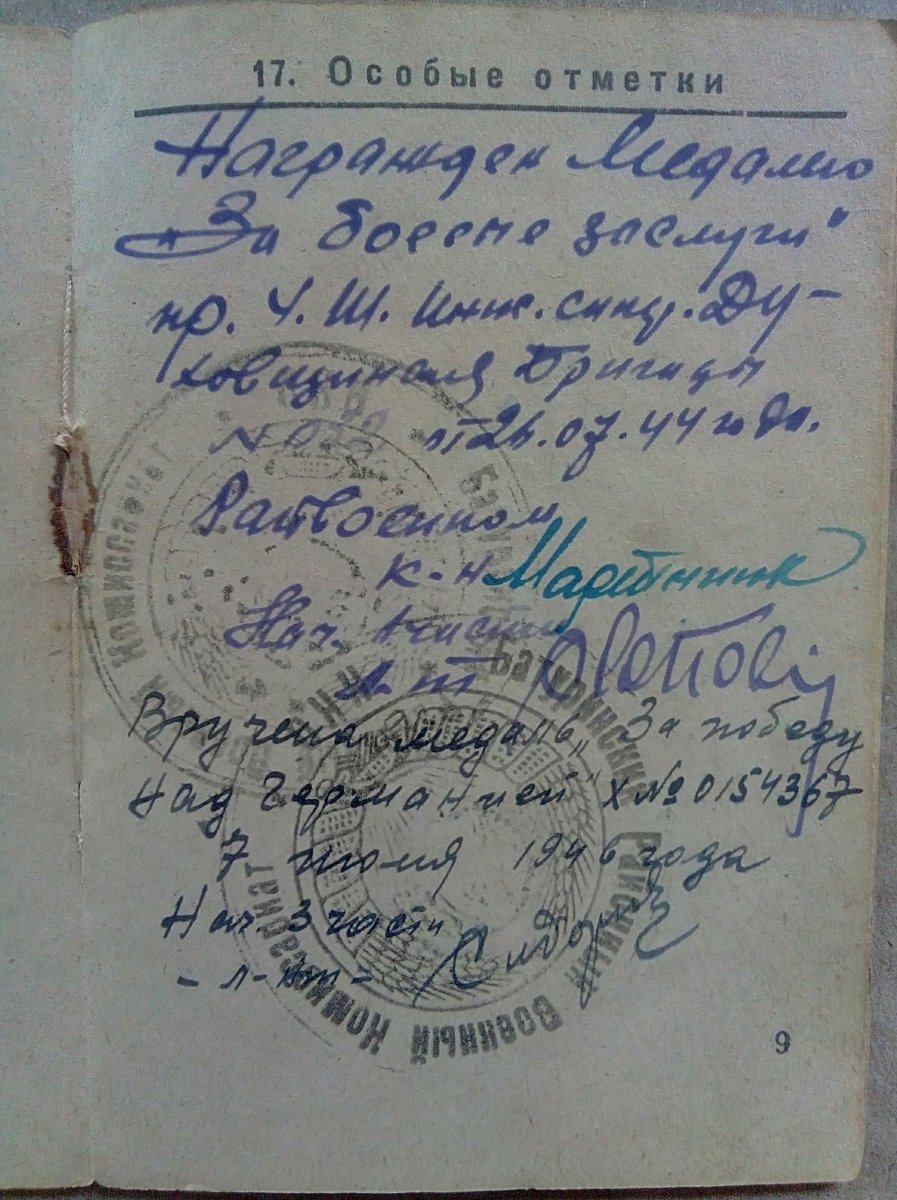 17. Особые отметки
Награжден Медалью
„За боевые заслуги"
пр. 4. Ш. Инж. сапер. Ду-
ховщинская Бригады
№ 022 от 26.07.44 года.
Райвоенком
к-н Мартынюк
Нач. 1 части
Вручена медаль „За победу
над Германией" X № 0154367
7 июня 1946 года
Нач. 3 части
- л-нт -
Батуринский Районный Военный Комиссариат
9